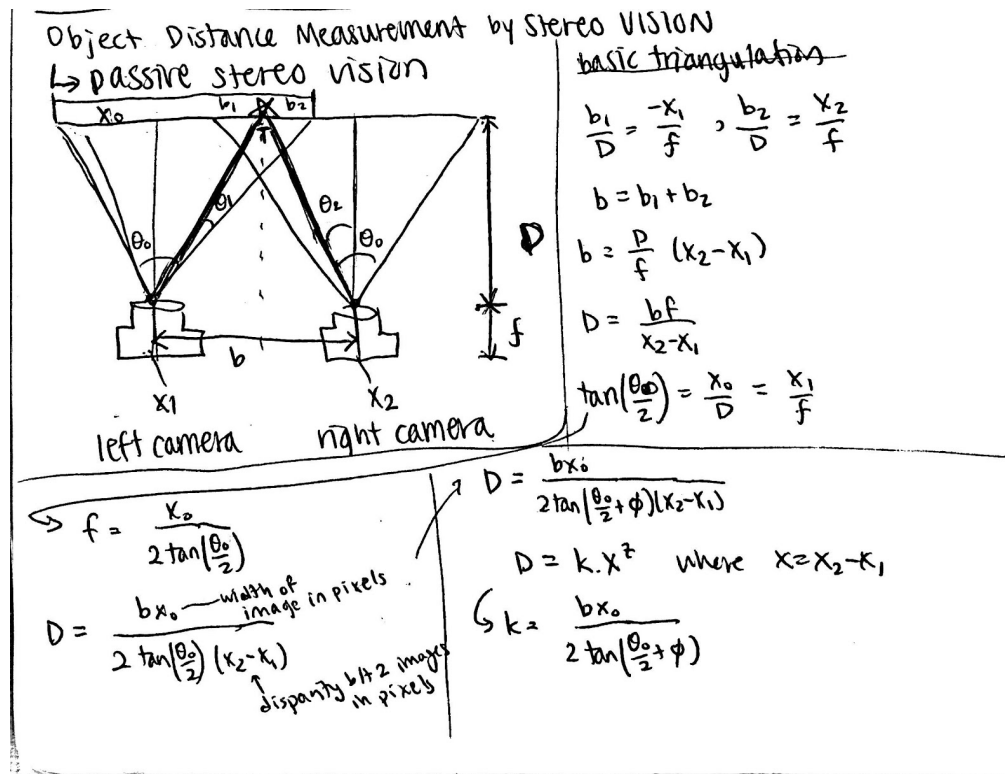 Object Distance Measurement by Stereo VISION
↳ passive stereo vision
x₀ b₁ b₂
θ₁ θ₂
θ₀ θ₀
D
f
b
x1 x2
left camera right camera
basic triangulation
b₁/D = -x₁/f , b₂/D = x₂/f
b = b₁ + b₂
b = D/f (x₂-x₁)
D = bf/(x₂-x₁)
tan(θ₀/2) = x₀/D = x₁/f
f = x₀/(2 tan(θ₀/2))
D = bx₀/(2 tan(θ₀/2) (x₂-x₁))
width of
image in pixels
disparity b/t 2 images
in pixels
D = bx₀/(2tan(θ₀/2+φ)(x₂-x₁))
D = k.x^z where x=x₂-x₁
k = bx₀/(2 tan(θ₀/2+φ))